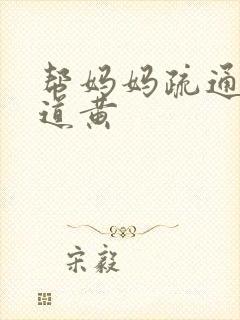 帮妈妈疏通
道黄
宋毅